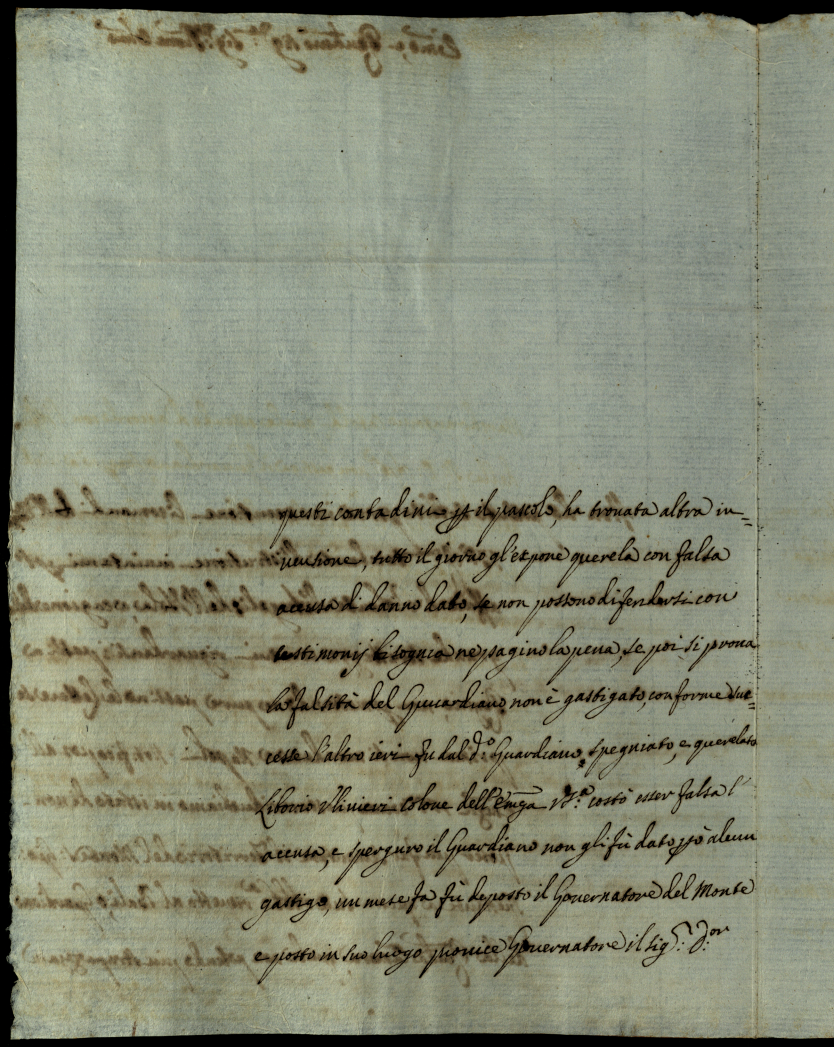 questi contadini p il pascolo, ha trovata altra in=
venzione, tutto il giorno gl'espone querela con falsa
accusa di danno dato, se non possono difendersi con
testimonij bisognia ne paghino la pena, se poi si prova
la falsità del Guardiano non è gastigato, conforme suc=
cesse l'altro ieri fu dal d.º Guardiano spegniato, e querelato
Liborio Ulivieri colone dell' V.ª costò esser falsa l'
accusa, e sperguro il Guardiano non gli fù dato però alcun
gastigo, un mese fa fù deposto il Governatore del Monte
e posto in suo luogo provice Governatore il Sig.r D.or